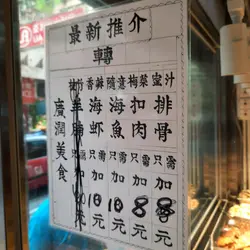 最新推介
轉
蜜汁排骨只需加8元
梅菜扣肉只需加8元
隨意海魚只需加10元
香辣海虾只需加10元
羊腩只需加元
廣潤美食